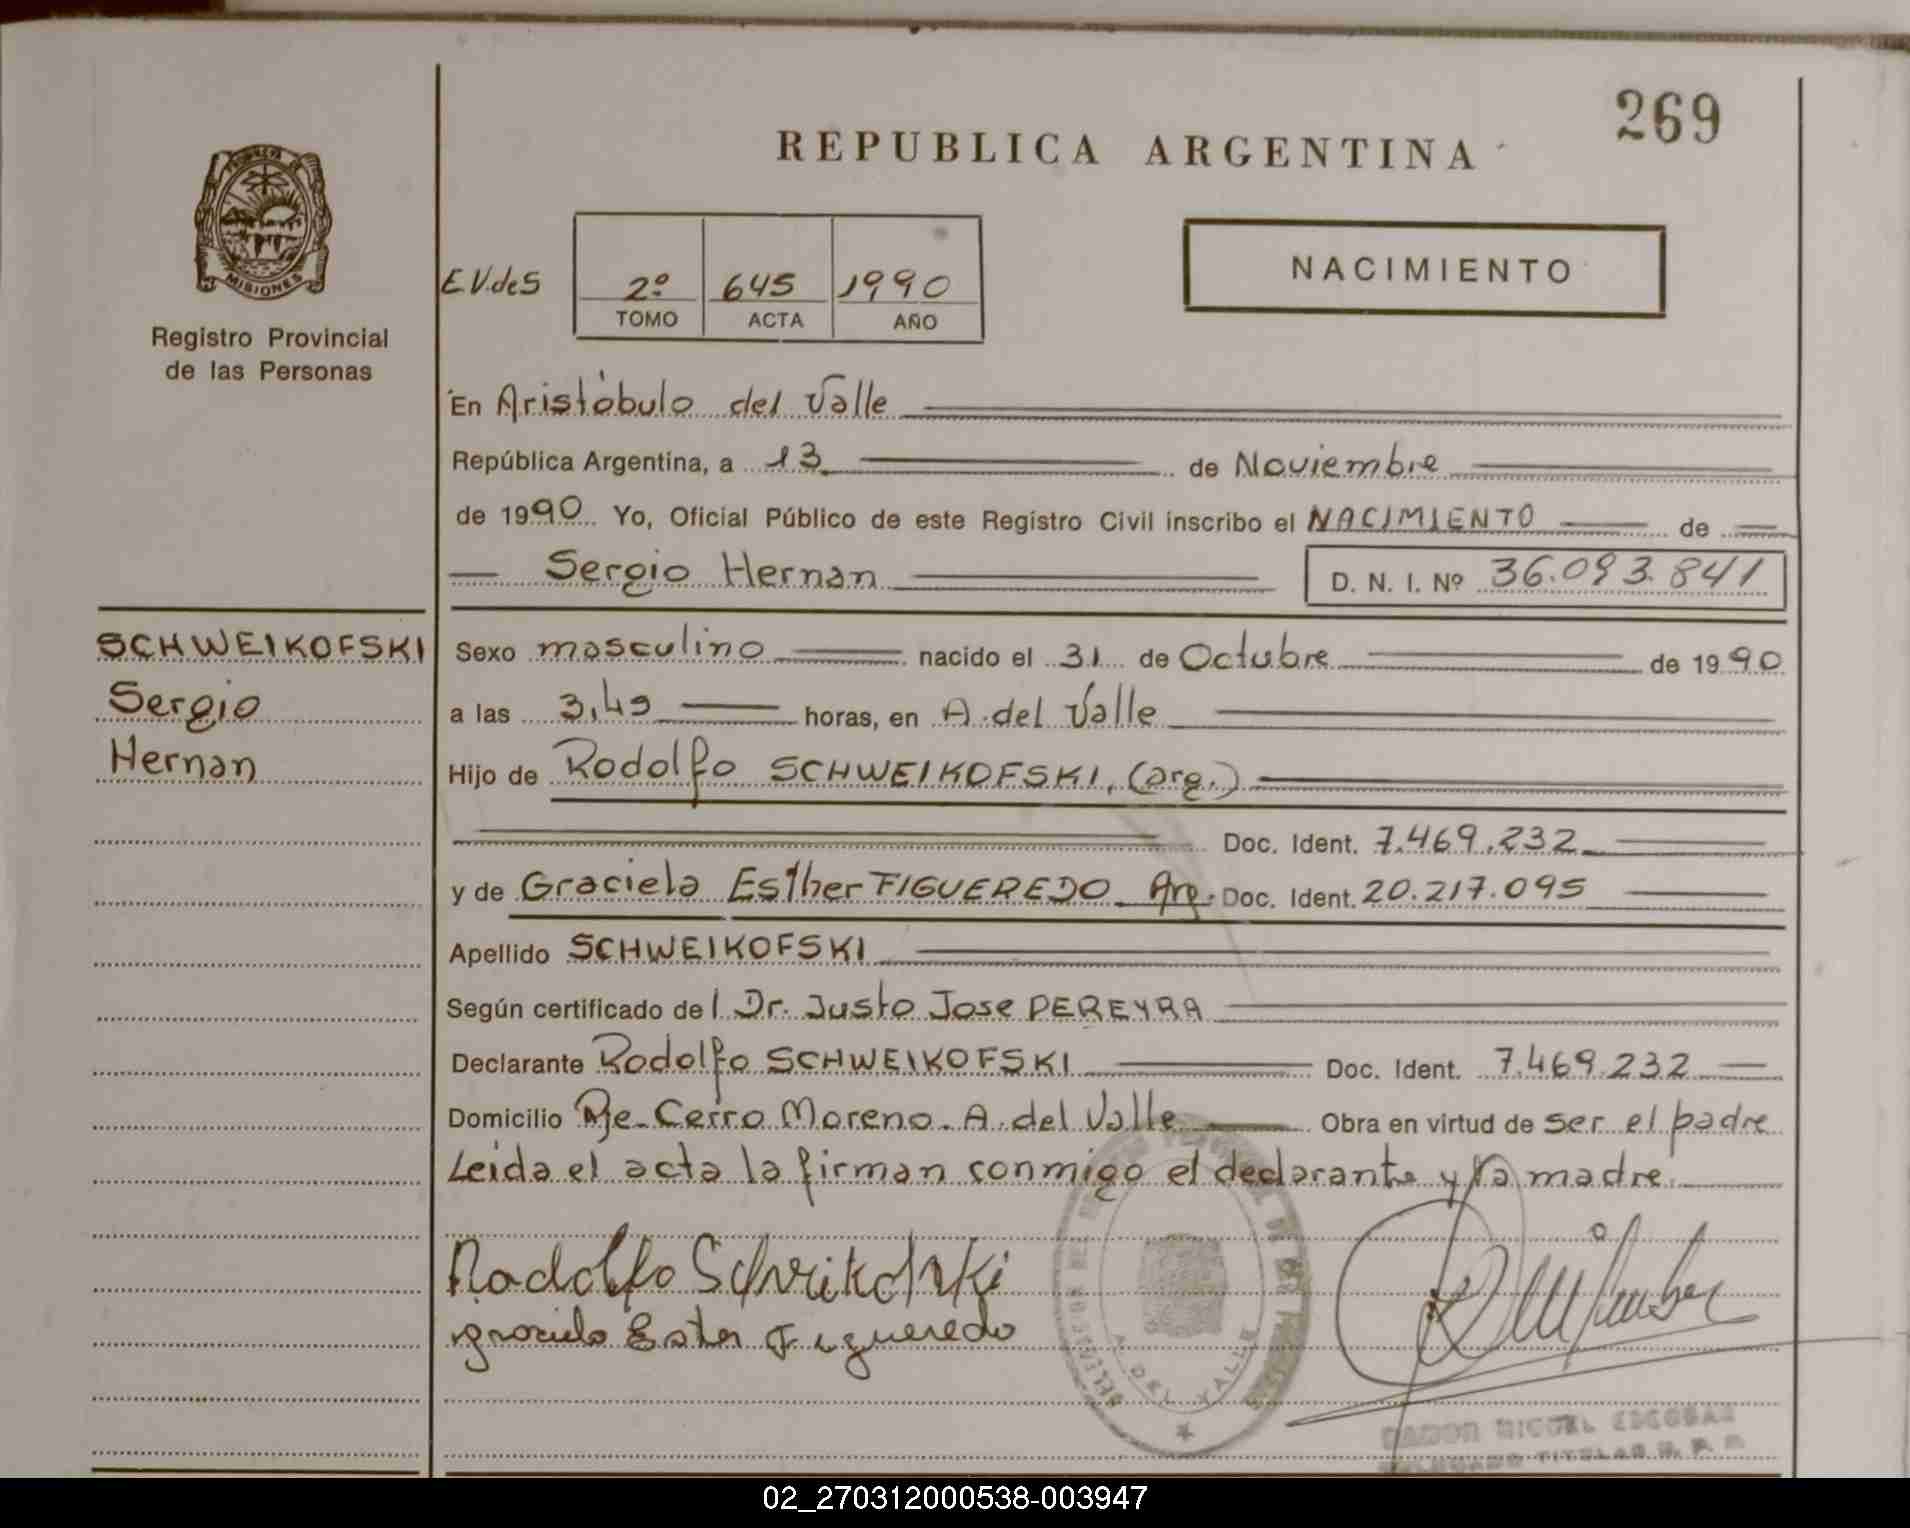 269
REPUBLICA ARGENTINA
PROVINCIA DE
MISIONES
Registro Provincial
de las Personas
E.V.deS
2º 645 1990
TOMO ACTA AÑO
NACIMIENTO
En Aristóbulo del Valle
República Argentina, a 13 de Noviembre
de 1990 Yo, Oficial Público de este Registro Civil inscribo el NACIMIENTO de
Sergio Hernan D. N. I. Nº 36.093.841
SCHWEIKOFSKI
Sergio
Hernan
Sexo masculino nacido el 31 de Octubre de 1990
a las 3,45 horas, en A. del Valle
Hijo de Rodolfo SCHWEIKOFSKI, (arg.)
Doc. Ident. 7.469.232
y de Graciela Esther FIGUEREDO Arg. Doc. Ident. 20.217.095
Apellido SCHWEIKOFSKI
Según certificado de l Dr. Justo Jose PEREYRA
Declarante Rodolfo SCHWEIKOFSKI Doc. Ident. 7.469.232
Domicilio Pje. Cerro Moreno. A. del Valle Obra en virtud de ser el padre
Leida el acta la firman conmigo el declarante y la madre
Rodolfo Schveikofski
graciela Ester Figueredo
A. DEL VALLE
RAMON MIGUEL ESCOBAR
DELEGADO TITULAR R. P. P.
02_270312000538-003947